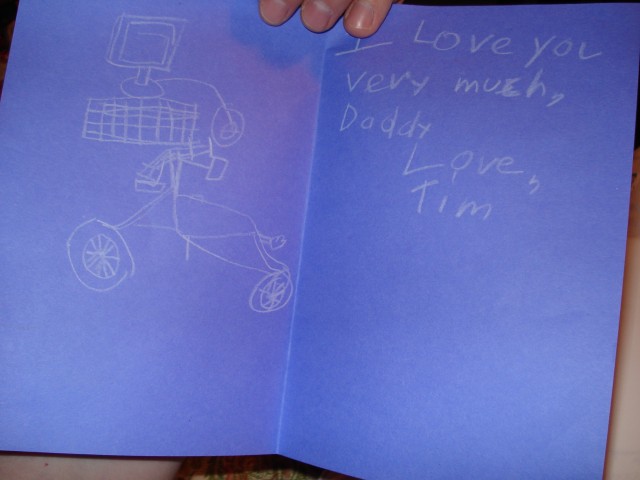 I Love you
very much,
Daddy
Love,
Tim